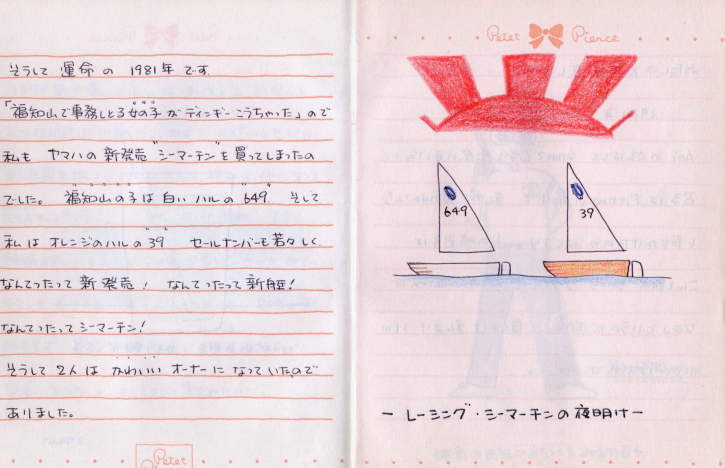 そうして 運命の 1981年です.
「福知山で事務しとる女の子がディンギーこうちゃった」ので
私も ヤマハの新発売 "シーマーチン"を買ってしまったの
でした。 福知山の子は白いハルの "649" そして
私は オレンジのハルの "39" セールナンバーも若々しく.
なんてったって新発売! なんてったって新艇!
なんてったってシーマーチン!
そうして 2人は かわいい オーナーに なっていたので
ありました。
Petet
Petet Pierce
649
39
ー レーシング・シーマーチンの夜明けー